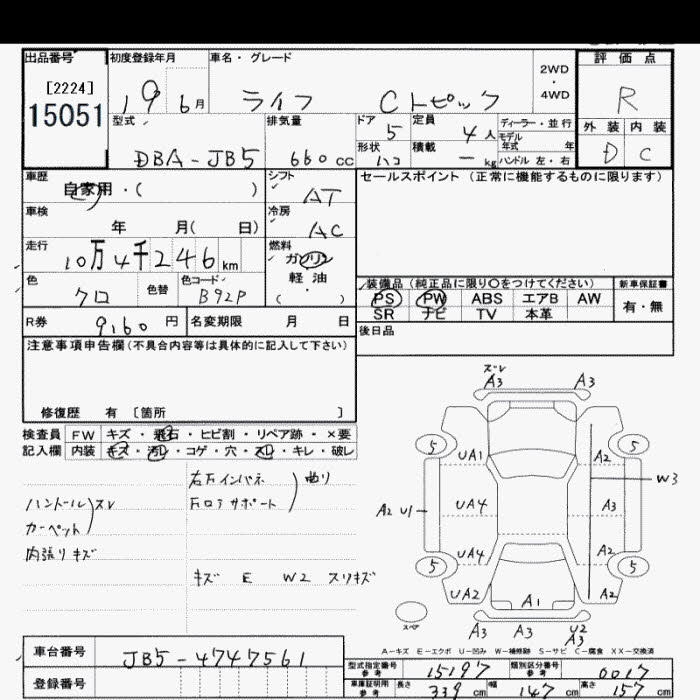 出品番号 初度登録年月 車名・グレード 2WD・4WD 評価点
[2224]
15051 19 6月 ライフ Cトピック R
型式 排気量 ドア 定員 ディーラー・並行 外装 内装
DBA-JB5 660cc 5 4人 モデル年式 年 D C
形状 ハコ 積載 ー kg ハンドル 左・右
車歴 自家用・( ) シフト AT セールスポイント (正常に機能するものに限ります)
車検 年 月( 日) 冷房 AC
走行 10万4千246km 燃料 ガソリン 軽油 ・( )
色 クロ 色替 色コード B92P
装備品 (純正品に限り○をつけてください) 新車保証書
PS PW ABS エアB AW 有・無
SR ナビ TV 本革
R券 9,160円 名変期限 月 日 後日品
注意事項申告欄(不具合内容等は具体的に記入して下さい)
修復歴 有 [箇所 ]
検査員 FW キズ・飛石・ヒビ割・リペア跡・×要
記入欄 内装 キズ・汚レ・コゲ・穴・スレ・キレ・破レ
右左インパネ 曲り
ハンドル スレ
カーペット
内張りキズ
キズ E W2 スリキズ
ズレ
A3 A3
5 5
UA1 A2
W3
A2 U1 UA4 A3
UA4 A2
5 5
UA2 A1 A2
スペア
A3 A3 U2
A3
A-キズ E-エクボ U-凹み W-補修跡 S-サビ C-腐食 XX-交換済
車台番号 JB5-4747561
登録番号
型式指定番号 参考 15197 類別区分番号 参考 0017
車庫証明用 参考 長さ 339cm 幅 147cm 高さ 157cm